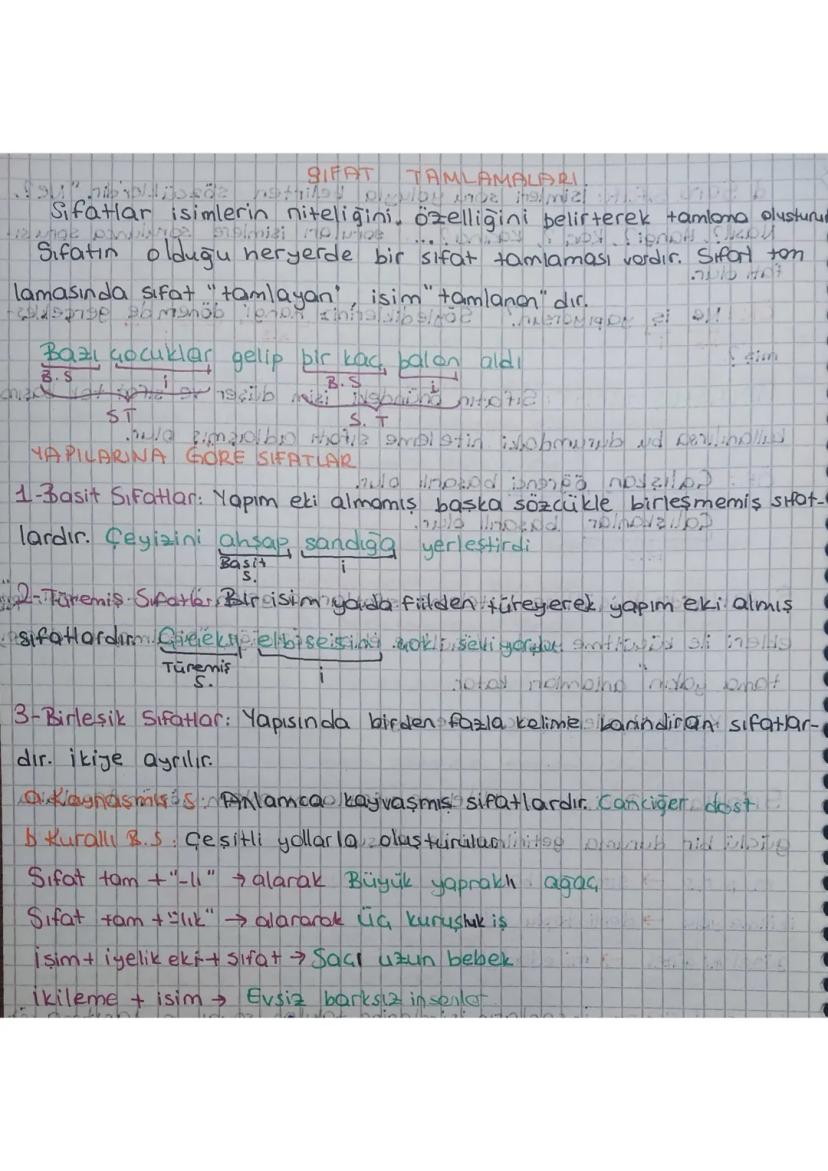 SIFAT TAMLAMALARI
Sıfatlar isimlerin niteliğini, özelliğini belirterek tamlama oluşturur
Sıfatın olduğu heryerde bir sıfat tamlaması vardır. Sıfat tam
lamasında sıfat "tamlayan", isim "tamlanan" dır.
Bazı çocuklar gelip bir kaç balon aldı
B.S i B.S i
ST S.T
YAPILARINA GÖRE SIFATLAR
1-Basit Sıfatlar: Yapım eki almamış başka sözcükle birleşmemiş sıfat-
lardır. Çeyizini ahşap sandığa yerleştirdi
Basit i
S.
2-Türemiş Sıfatlar: Bir isim yada fiilden türeyerek yapım eki almış
sıfatlardır. Çiçekli elbisesini çok seviyordu
Türemiş i
S.
3-Birleşik Sıfatlar: Yapısında birden fazla kelime barındıran sıfatlar-
dır. İkiye ayrılır.
a. Kaynaşmış S: Anlamca kayvaşmış sıfatlardır. Canciğer dost
b Kurallı B.S: Çeşitli yollarla oluşturulan
Sıfat tam + "-lı" → alarak Büyük yapraklı ağaç
Sıfat tam + "lık" → alararak Üç kuruşluk iş
isim + iyelik eki + sıfat → Saçı uzun bebek
ikileme + isim → Evsiz barksız insanlar